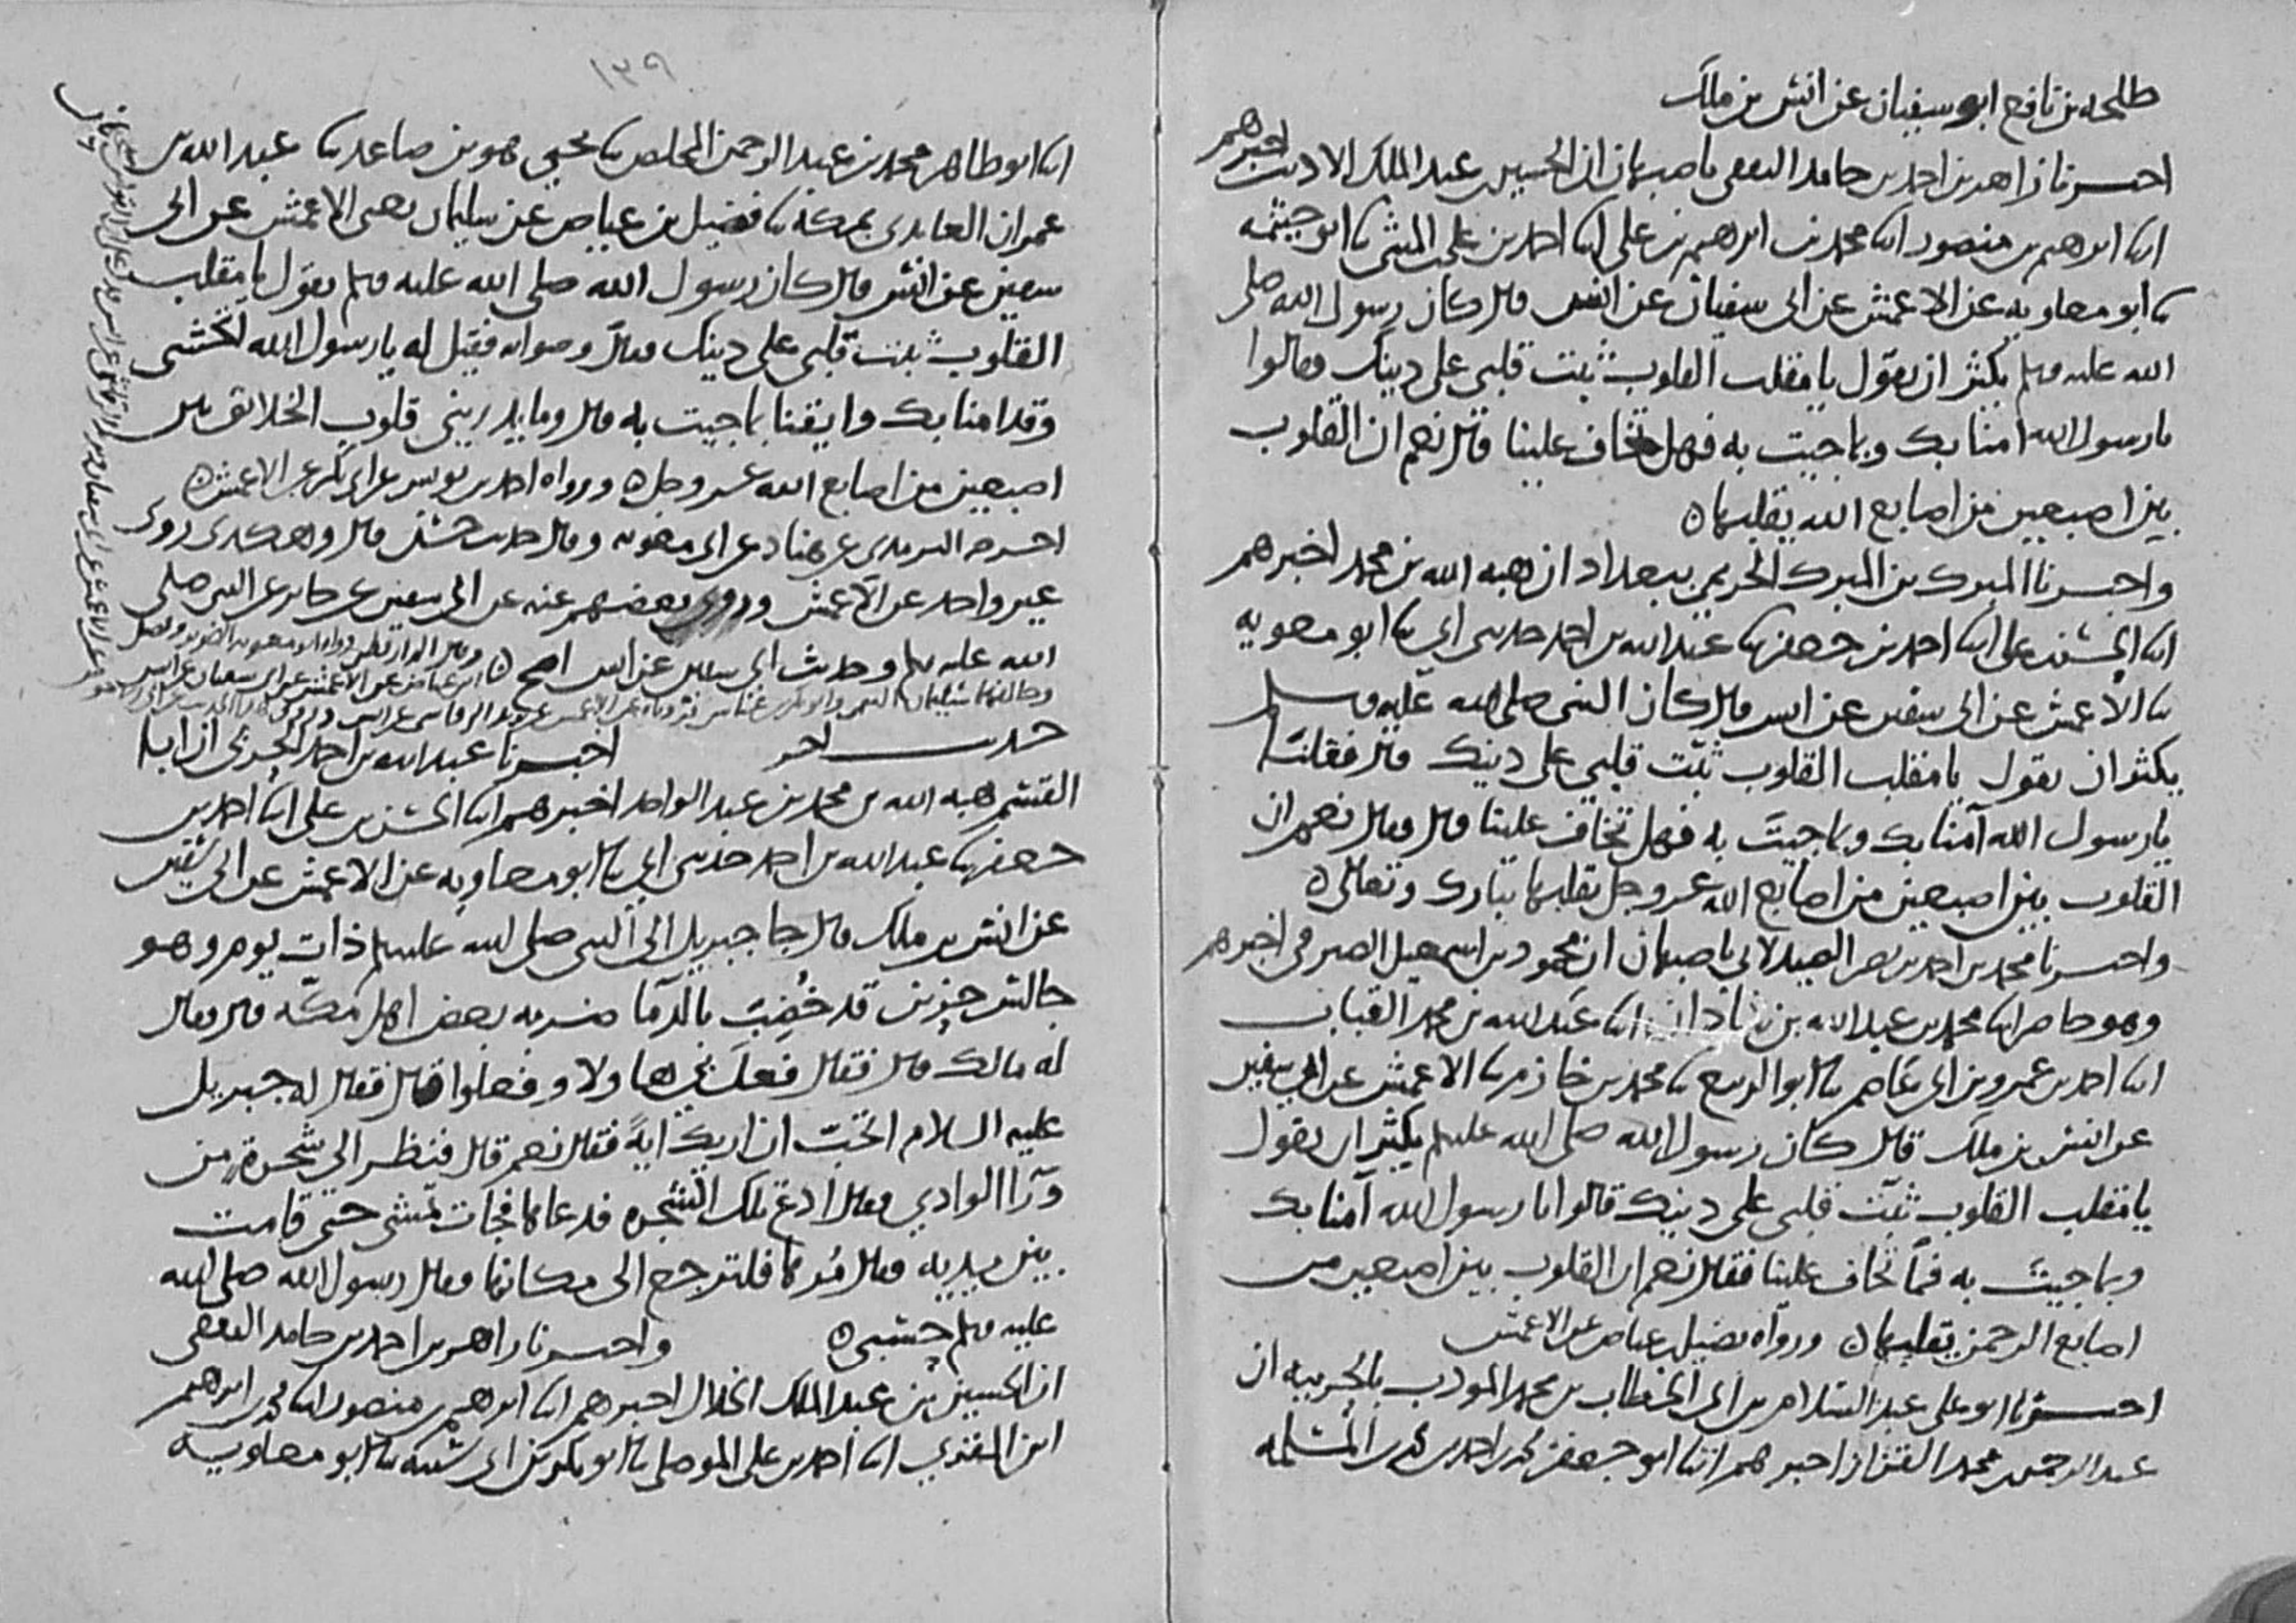 طلحه بن نافع ابو سفيان عن انس بن ملك
اخبرنا زاهر بن احمد بن حامد الثقفي باصبهان ان الحسين بن عبد الملك الاديب اخبرهم
ابنا ابرهيم بن منصور ابنا محمد بن ابرهيم بن علي ابنا احمد بن علي بن المثنى ثنا ابو خيثمه
ثنا ابو معاويه عن الاعمش عن ابي سفيان عن انس قال كان رسول الله صلى
الله عليه وسلم يكثر ان يقول يا مقلب القلوب ثبت قلبي على دينك فقالوا
يا رسول الله امنا بك وبما جيت به فهل تخاف علينا قال نعم ان القلوب
بين اصبعين من اصابع الله يقلبها ه
واخبرنا المبرك بن المبرك الحريمي ببغداد ان هبه الله بن محمد اخبرهم
ابنا الحسن بن علي ابنا احمد بن جعفر ثنا عبد الله بن احمد حدثني ابي ثنا ابو معويه
ثنا الاعمش عن ابي سفين عن انس قال كان النبي صلى الله عليه وسلم
يكثر ان يقول يا مقلب القلوب ثبت قلبي على دينك قال فقلنا
يا رسول الله آمنا بك وبما جيت به فهل تخاف علينا قال فقال نعم ان
القلوب بين اصبعين من اصابع الله عز وجل يقلبها تبارك وتعالى ه
واخبرنا محمد بن احمد بن نصر الصيدلاني باصبهان ان محمود بن اسمعيل الصيرفي اخبرهم
وهو حاضر ابنا محمد بن عبد الله بن شاذان ابنا عبد الله بن محمد القباب
ابنا احمد بن عمرو بن ابي عاصم ثنا ابو الربيع ثنا محمد بن خازم ثنا الاعمش عن ابي سفين
عن انس بن ملك قال كان رسول الله صلى الله عليه وسلم يكثر ان يقول
يا مقلب القلوب ثبت قلبي على دينك قالوا يا رسول الله آمنا بك
وبما جيت به فما تخاف علينا فقال نعم ان القلوب بين اصبعين من
اصابع الرحمن يقلبها ه ورواه فضيل بن عياض عن الاعمش
اخبرنا ابو علي عبد السلام بن ابي الخطاب بن محمد المودب بالحربيه ان
عبد الرحمن بن محمد القزاز اخبرهم ابنا ابو جعفر محمد بن احمد بن محمد بن المسلمه
١٣٩
ابنا ابو طاهر محمد بن عبد الرحمن المخلص ثنا يحيى هو بن صاعد ثنا عبد الله بن
عمران العابدي بمكة ثنا فضيل بن عياض عن سليمان يعني الاعمش عن ابي
سفين عن انس قال كان رسول الله صلى الله عليه وسلم يقول يا مقلب
القلوب ثبت قلبي على دينك فقيل له يا رسول الله اتخشى
وقد امنا بك وايقنا بما جيت به قال وما يدريني قلوب الخلائق بين
اصبعين من اصابع الله عز وجل ه ورواه احمد بن يونس عن ابي بكر عن الاعمش ه
اخرجه الترمذي عن هناد عن ابي معويه وقال حديث حسن قال وهكذى روى
غير واحد عن الاعمش وروى بعضهم عنه عن ابي سفين عن جابر عن النبي صلى
الله عليه وسلم وحديث ابي سفين عن انس اصح ه
حديث اخر اخبرنا عبد الله بن احمد الحربي ان ابا
القسم هبه الله بن محمد بن عبد الواحد اخبرهم ابنا الحسن بن علي ابنا احمد بن
جعفر ثنا عبد الله بن احمد حدثني ابي ثنا ابو معاويه عن الاعمش عن ابي سفين
عن انس بن ملك قال جا جبريل الى النبي صلى الله عليه وسلم ذات يوم وهو
جالس حزين قد خضب بالدما ضربه بعض اهل مكة قال فقال
له مالك قال فقال فعل بي هاولا وفعلوا قال فقال له جبريل
عليه السلام اتحب ان اريك اية فقال نعم قال فنظر الى شجرة من
ورآ الوادي فقال ادع تلك الشجره فدعاها فجات تمشي حتى قامت
بين يديه فقال مرها فلترجع الى مكانها فقال رسول الله صلى الله
عليه وسلم حسبي ه واخبرنا زاهر بن احمد بن حامد الثقفي
ان الحسين بن عبد الملك الخلال اخبرهم ابنا ابرهيم بن منصور ابنا محمد بن ابرهيم
ابن المقري ابنا احمد بن علي الموصلي ثنا ابو بكر بن ابي شيبه ثنا ابو معاويه